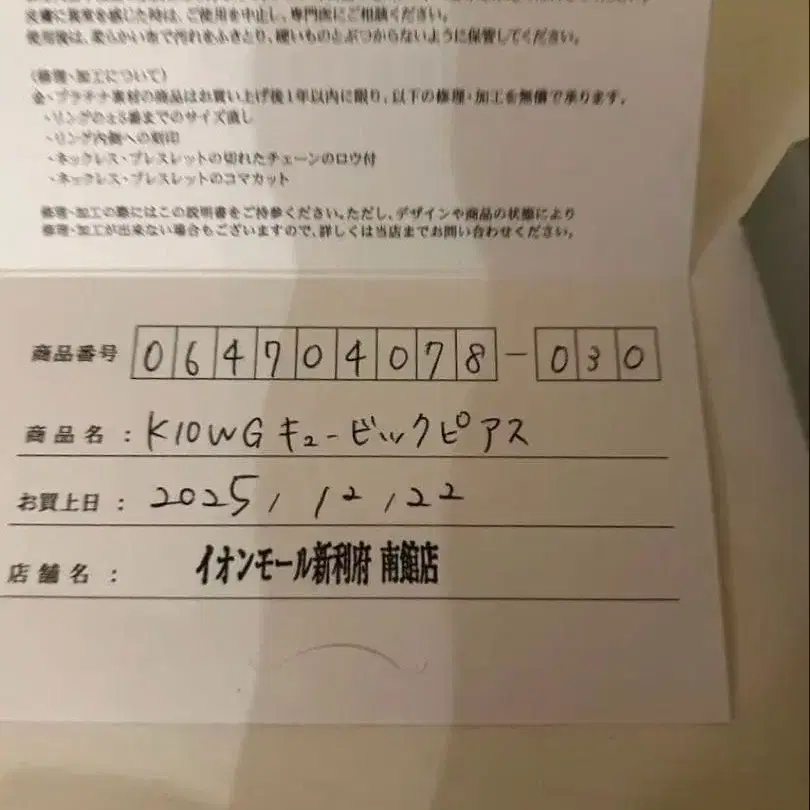 皮膚に異常を感じた時は、ご使用を中止し、専門医にご相談ください。
使用後は、柔らかい布で汚れをふきとり、硬いものとぶつからないように保管してください。
〈修理・加工について〉
金・プラチナ素材の商品はお買い上げ後1年以内に限り、以下の修理・加工を無償で承ります。
・リングの±3番までのサイズ直し
・リング内側への刻印
・ネックレス・ブレスレットの切れたチェーンのロウ付
・ネックレス・ブレスレットのコマカット
修理・加工の際にはこの説明書をご持参ください。ただし、デザインや商品の状態により
修理・加工が出来ない場合もございますので、詳しくは当店までお問い合わせください。
商品番号 064704078-030
商品名 : K10WGキュービックピアス
お買上日 : 2025, 12, 22
店舗名 : イオンモール新利府 南館店